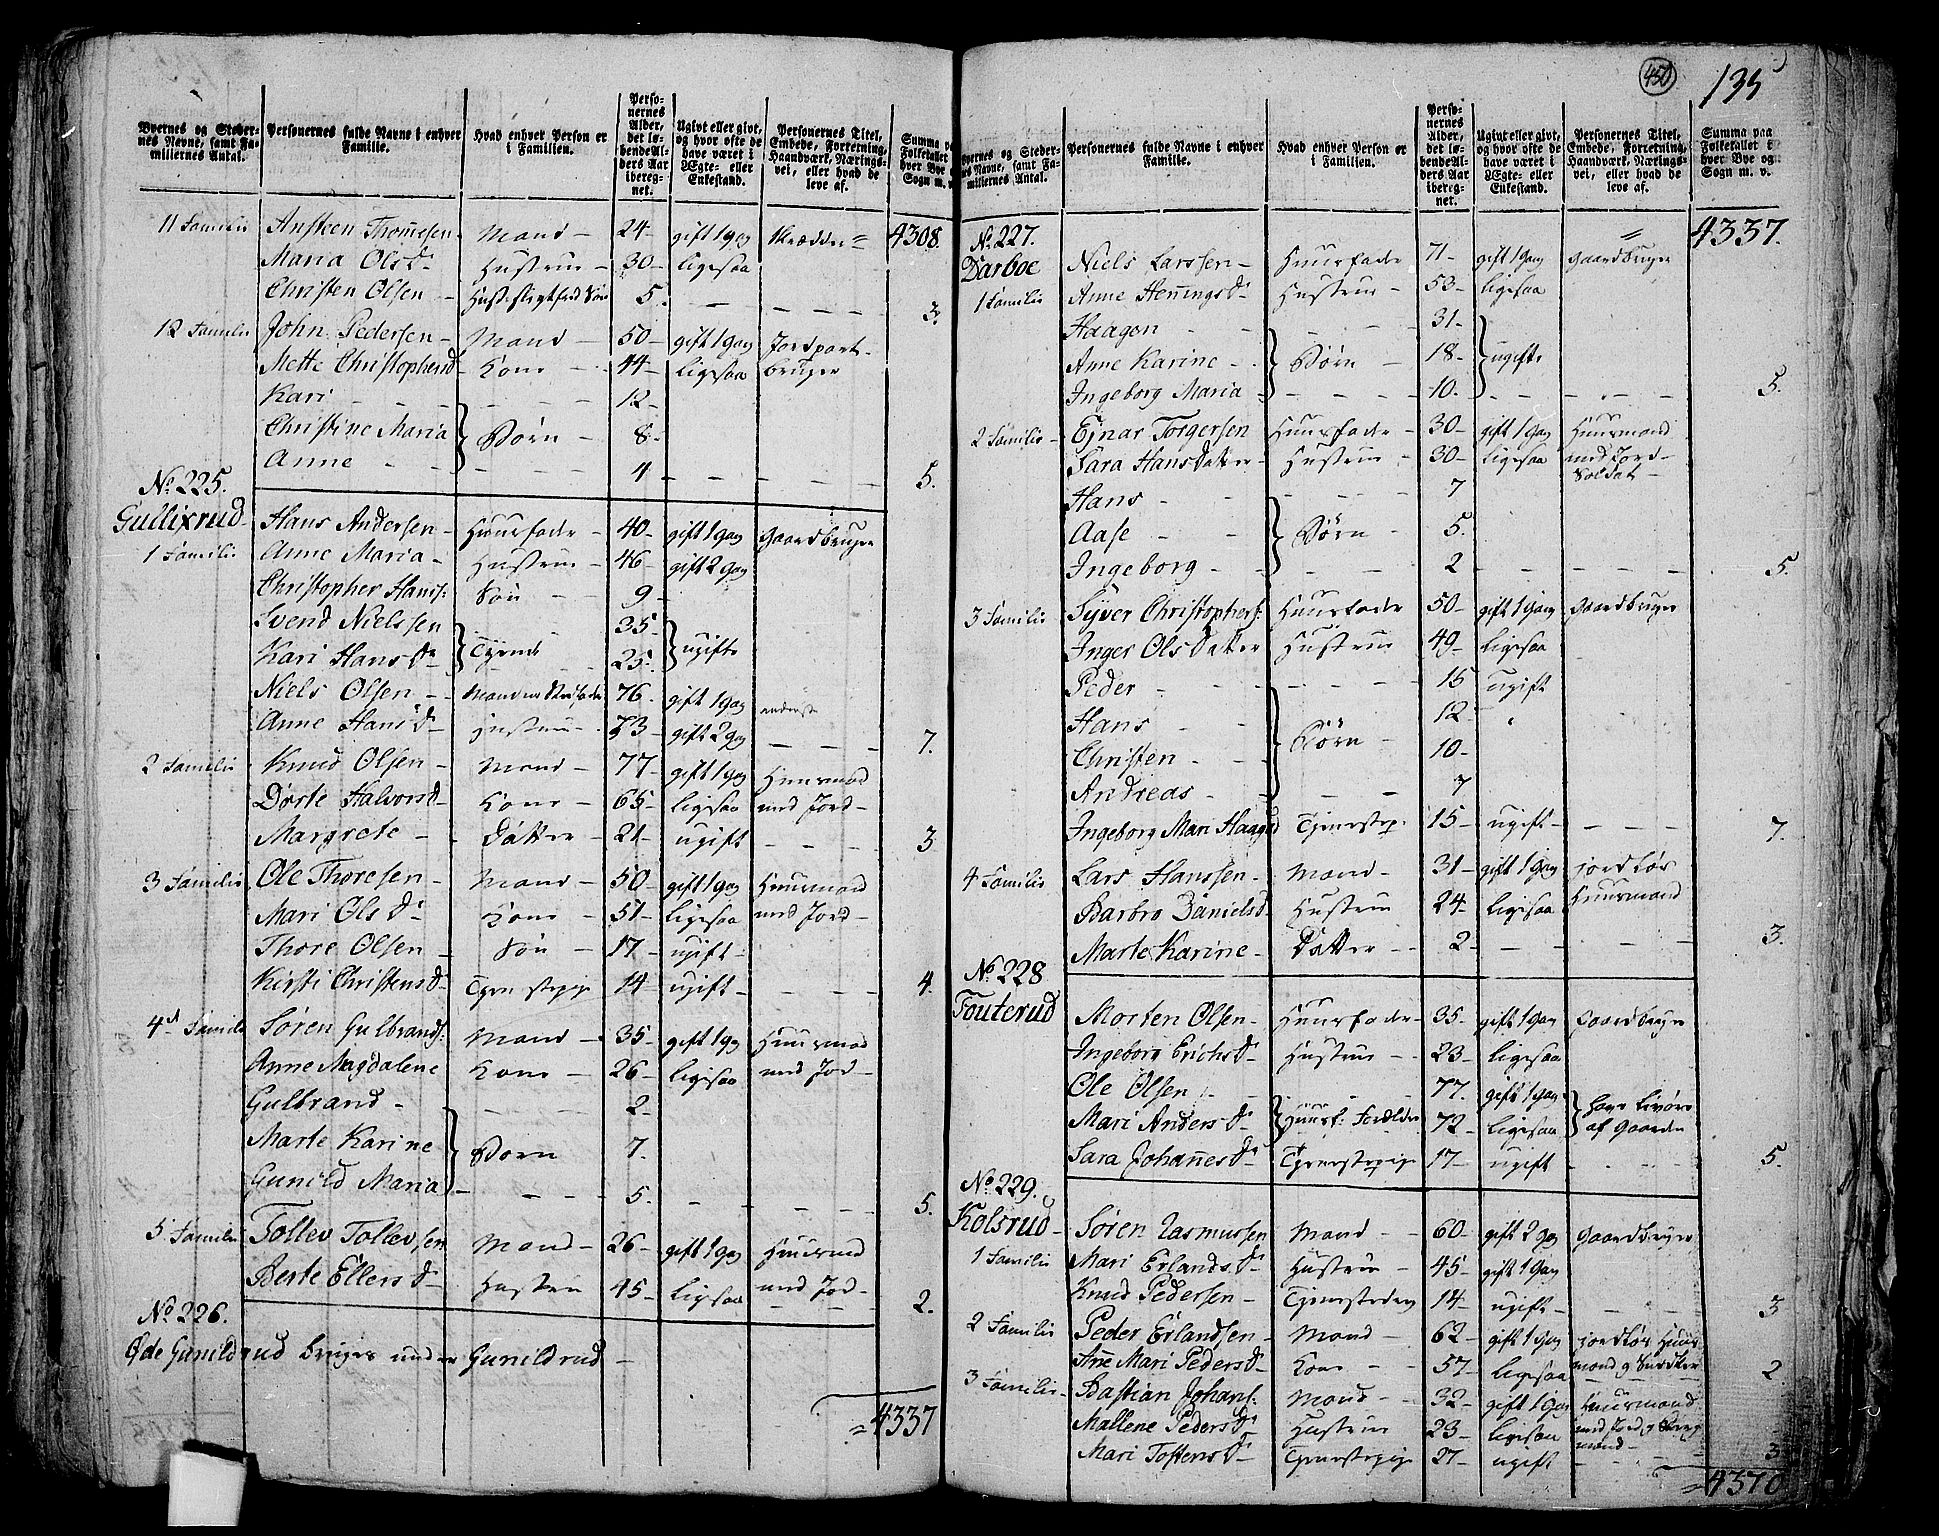 Byernes og Steder-
nes Navne, samt Fa-
miliernes Antal.
Personernes fulde Navne i enhver
Familie.
Hvad enhver Person er
i Familien.
Perso-
nernes
Alder,
det lø-
bende Al-
ders Aar
ibereg-
net.
Ugivt eller givt,
og hvor ofte de
have været i
Ægte- eller
Enkestand.
Personernes Titel,
Embede, Forretning,
Haandværk, Nærings-
vei, eller hvad de
leve af.
Summa
Folketallet
hver Bye
Sogn m. v.
11 Familie Ansteen Thommesen Mand 24 gift 1 gag Skrædder 4308
Maria Olsd. Hustrue 30 ligesaa
Christen Olsen 5 3
12 Familie John Pedersen Mand 50 gift 1 gag Jordpart-
Mette Christophersd. Kone 44 ligesaa bruger
Kari 12
Christine Maria Børn 8
Anne 4 5
No. 225.
Gullixrud Hans Andersen Huusfader 40 gift 1 gag Gaardbruger
1 Familie Anne Maria Hustrue 46 gift 2 gag
Christopher Hanss: Søn 9
Svend Nielssen Tyende 35 ugifte
Kari Hansd. 25
Niels Olsen 76 gift 1 gag
Anne Hansd. Hustrue 73 gift 2 gag 7
2 Familie Knud Olsen Mand 77 gift 1 gag Huusmand
Dorte Halvorsd. Kone 65 ligesaa med Jord
Margrete Datter 21 ugift 3
3 Familie Ole Thoresen Mand 50 gift 1 gag Huusmand
Mari Olsd. Kone 51 ligesaa med Jord
Thore Olsen Søn 17 ugift
Kirsti Christensd. Tjenestepige 14 ugift 4
4 Familie Søren Gulbrands: Mand 35 gift 1 gag Huusmand
Anne Magdalene Kone 26 ligesaa med Jord
Gulbrand 2
Marte Karine Børn 7
Gunild Maria 5 5
5 Familie Tollev Tollevsen Mand 26 gift 1 gag Huusmand
Berte Ellersd. Hustru 45 ligesaa med Jord 2
No. 226.
Øde Gunildrud bruges under Gunildrud
4337
450
135
Byernes og Steder-
nes Navne, samt Fa-
miliernes Antal.
Personernes fulde Navne i enhver
Familie.
Hvad enhver Person er
i Familien.
Perso-
nernes
Alder,
det lø-
bende Al-
ders Aar
ibereg-
net.
Ugivt eller givt,
og hvor ofte de
have været i
Ægte- eller
Enkestand.
Personernes Titel,
Embede, Forretning,
Haandværk, Nærings-
vei, eller hvad de
leve af.
Summa paa
Folketallet i
hver Bye og
Sogn m. v.
No. 227. 4337.
Darboe Niels Larssen Huusfader 71 gift 1 gang Gaardbruger
1 Familie Anne Henningsd. Hustrue 53 ligesaa
Haagen 31
Anne Karine Børn 18 ugifte
Ingeborg Maria 10 5
2 Familie Ejnar Torgersen Huusfader 30 gift 1 gang Huusmand
Sara Hansdatter Hustrue 30 ligesaa med Jord
Soldat
Hans 7
Aase Børn 5
Ingeborg 2 5
3 Familie Syver Christophers: Huusfader 50 gift 1 gang Gaardbruger
Inger Olsdatter Hustrue 49 ligesaa
Peder 15 ugift
Hans 12
Christen Børn 10
Andreas 7
Ingeborg Mari Haagsd 15 ugift 7
4 Familie Lars Hanssen Mand 31 gift 1 gang jordløs
Barbro Danielsd. Hustrue 24 ligesaa Huusmand
Marte Karine Datter 2 3
No. 228
Fouterud Morten Olsen Huusfader 35 gift 1 gang Gaardbruger
Ingeborg Erichsd. Hustrue 23 ligesaa
Ole Olsen 77 gift 1 gang
Mari Andersd. Huusf: Forældre 72 ligesaa af Gaarden
Sara Johannesd. Tjenestepige 17 ugift 5
No. 229.
Kolsrud Søren Rasmussen Mand 60 gift 2 gag Gaardbruger
1 Familie Mari Erlandsd. Hustrue 45 gift 1 gang
Knud Pedersen Tjenestedreng 14 ugift 3
2 Familie Peder Erlandsen Mand 62 gift 1 gang jordløs Huus
Anne Mari Pedersd. Kone 57 ligesaa mand og 2
3 Familie Bastian Johans: Mand 32 gift 1 gang Huusmand
Mallene Pedersd. Hustrue 23 ligesaa med Jord
Mari Tostensd. Tjenestepige 27 ugift mand 3
4370